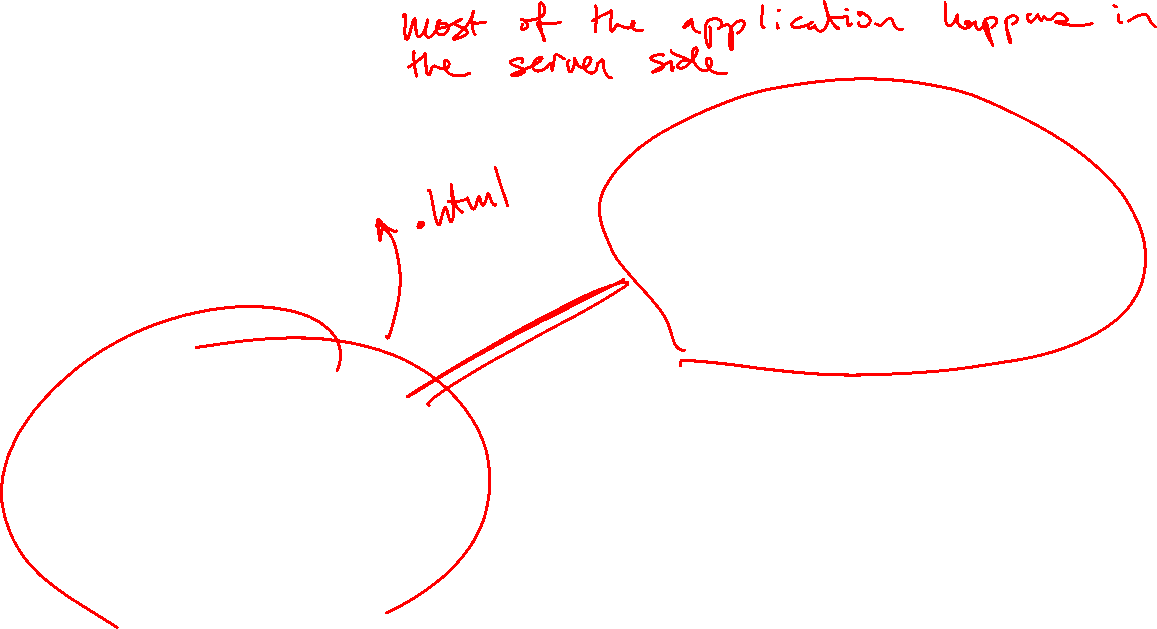 most of the application happens in
the server side
.html